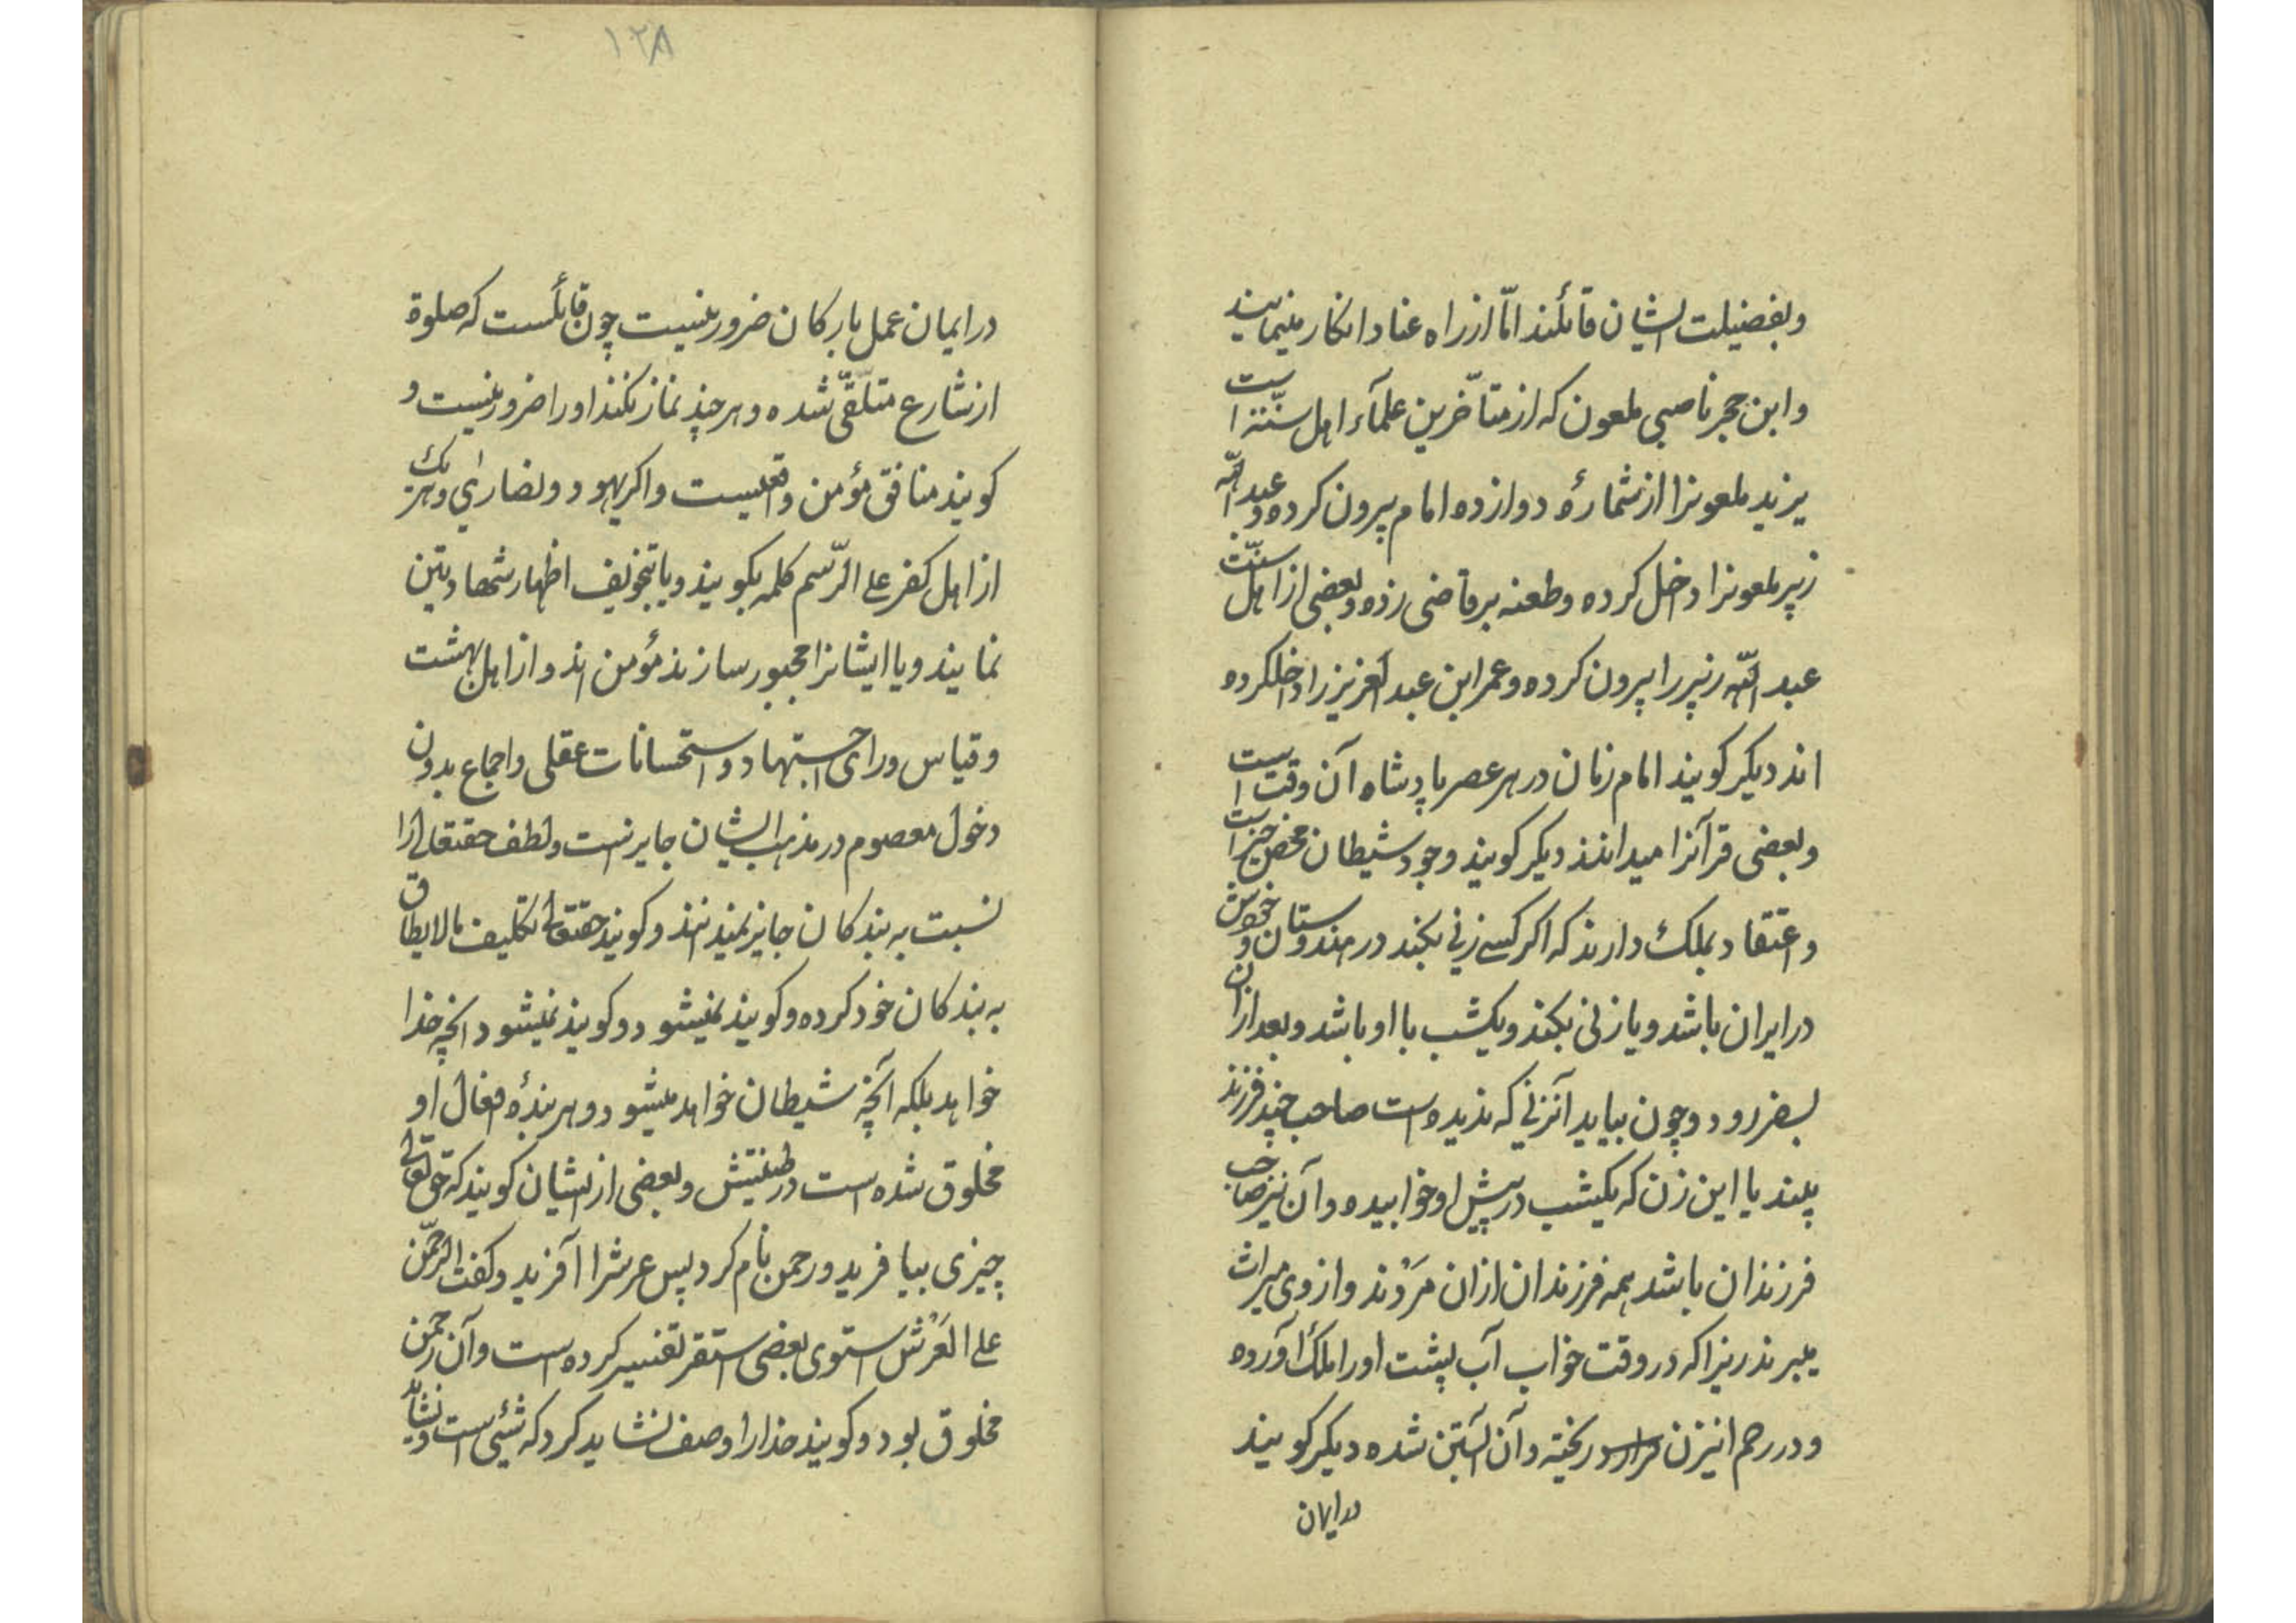 وبفضیلت ایشان قائلند امّا از راه عناد انکار مینمایند
وابن حجر ناصبی ملعون که از متأخّرین علمآء اهل سنّة است
یزید ملعونرا از شمارهٔ دوازده امام پیرون کرده و عبد اللّه
زپیر ملعونرا داخل کرده وطعنه برقاضی زده وبعضی از اهل سنّت
عبد اللّه زپیر را پیرون کرده وعمر ابن عبد العزیز را داخلکرده
اند دیکر کویند امام زمان در هر عصر پادشاه آن وقت است
وبعضی قرآنرا میدانند دیکر کویند وجود شیطان محض خیر است
واعتقاد بملک دارند که اکر کسے زنی بکند در هندوستان و خودش
در ایران باشد ویا زنی بکند ویکشب با او باشد وبعد ازان
بسفر رود وچون بیاید آنزنی که ندیده است صاحب چند فرزند
پیند یا این زن که یکشب در پیش او خوابیده وآن نیز صاحب
فرزندان باشد همه فرزندان ازان مَرْدند وازوی میراث
میبرند زیرا که در وقت خواب آب پشت اورا ملک آورده
ودر رحم انیزن ریخته وآن آبستن شده دیکر کویند
در ایمان
۱۲۸
در ایمان عمل بارکان ضرور نیست چون قائلست که صلوة
از شارع متلّقّی شده وهر چند نماز نکند اورا ضرور نیست و
کویند منافق مؤمن واقعیست واکر یهود ونصاری وهر یک
از اهل کفر علی الرّسم کلمه بکویند ویا بتخویف اظهار شهادتین
نمایند ویا ایشانرا مجبور سازند مؤمن اند واز اهل بهشت
وقیاس ورای واجتهاد واستحسانات عقلی واجماع بدون
دخول معصوم در مذهب ایشان جایز است ولطف حقتعالی را
نسبت به بندکان جایز نمیدانند وکویند حقتعالی تکلیف مالایطاق
به بندکان خود کرده وکویند نمیشود وکویند نمیشود آنچه خدا
خواهد بلکه آنچه شیطان خواهد میشود وهر بندهٔ افعال او
مخلوق شده است در طینتش وبعضی از ایشان کویند که حق تعالی
چیزی بیافرید ورحمن نام کرد پس عرشرا آفرید وکفت الرّحمن
علی العَرْش استوی بعضی استقر تفسیر کرده است وآن رحمن
مخلوق بود وکویند خدارا وصف نشاید کرد که شیئی است ونشاید